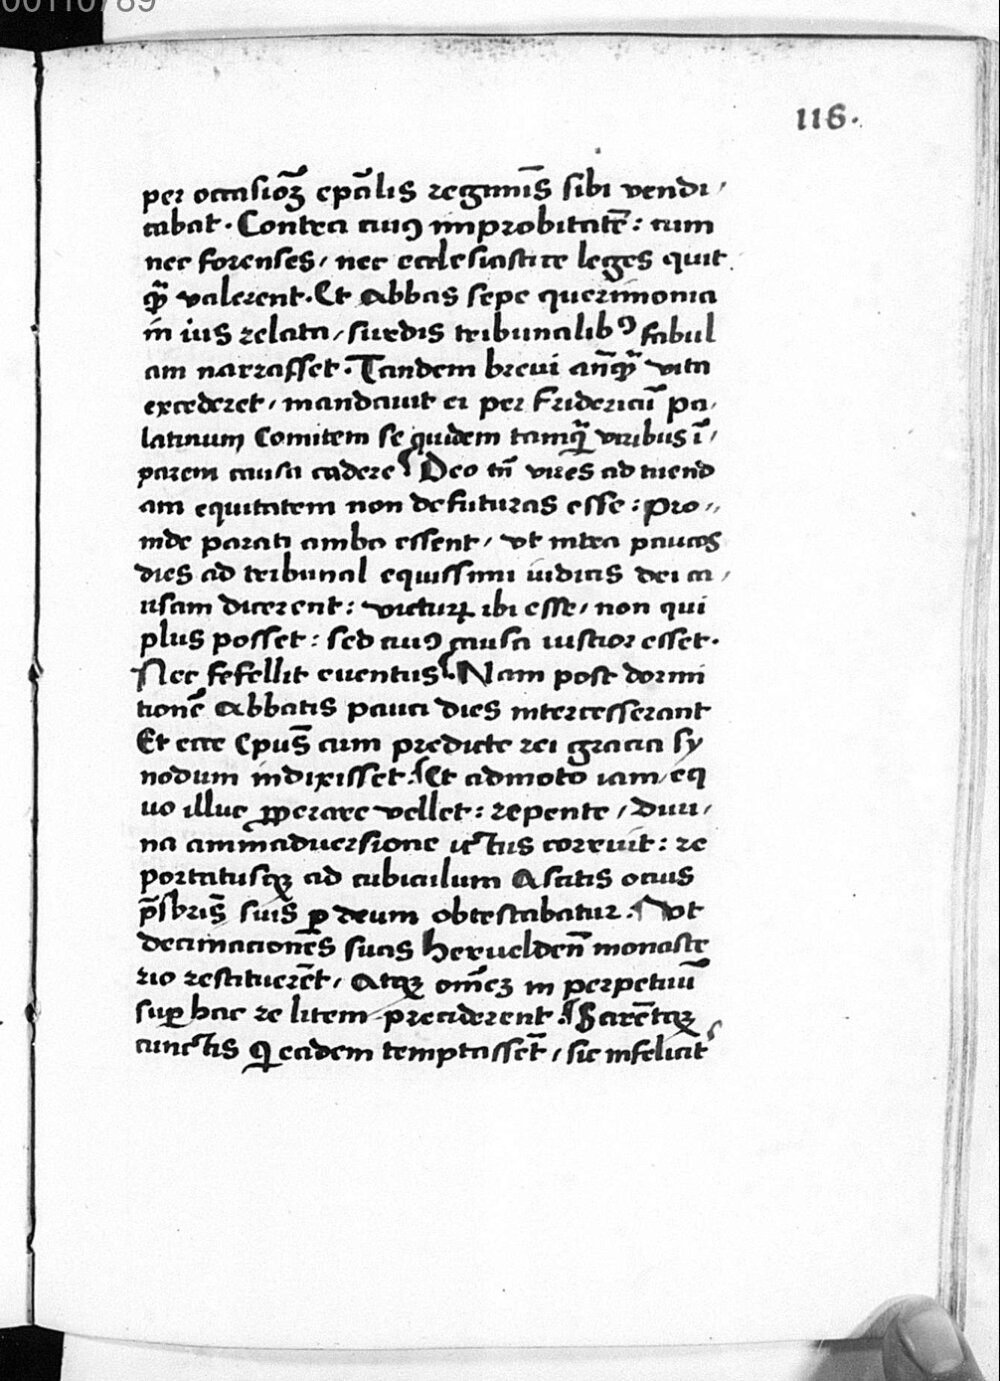 00110789
116.
per occasioꝫ ep̄alis regimīs sibi vendi,
cabat. Contra cuiꝰ improbitatē: cum
nec forenses, nec ecclesiastice leges quit
q̄ valerent. Et Abbas sepe querimonia
in ius relata, surdis tribunalibꝰ fabul
am narrasset. Tandem brevi anq̄ vita
excederet, mandavit ei per Fridericū pa,
latinum Comitem se quidem tamq̄ viribus ī,
parem causa cadere Deo tn̄ vires ad tuend
am equitatem non defuturas esse: Pro,,
inde parati ambo essent, vt intra paucos
dies ad tribunal equissimi iudicis dei ca,
usam dicerent: victuꝝ ibi esse, non qui
plus posset: sed cuiꝰ causa iustior esset.
Nec fefellit euentus. Nam post dormi
tionē Abbatis pauci dies intercesserant
Et ecce Epus̄ cum predicte rei gracia sy
nodum indixisset. Et admoto iam, eq
uo illuc ꝓperare vellet: repente, diui,
na animaduersione ictus corruit: re
portatusqꝫ ad cubiculum Ascitis ocius
p̄sbris̄ suis̄ ꝑ deum obtestabatur. Vt
decimacionēs suas Herueldeñ monaste
rio restituerēt, Atqꝫ om̄eꝫ in perpetuū
suꝑ hac re litem preciderent. Sarētaqꝫ
cunctis q̄ eadem temptassēt, sic infelicit